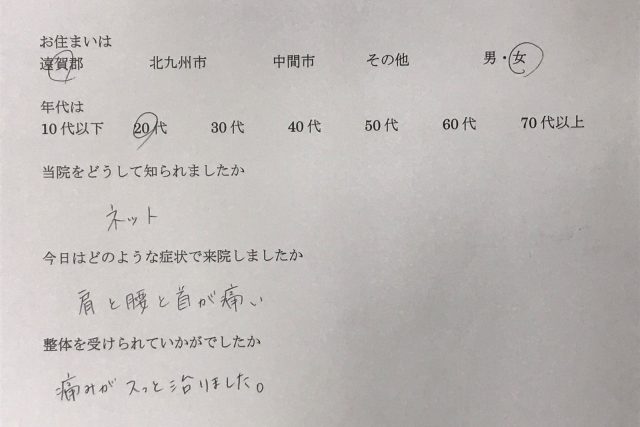 お住まいは
遠賀郡 北九州市 中間市 その他 男・女
年代は
10代以下 20代 30代 40代 50代 60代 70代以上
当院をどうして知られましたか
ネット
今日はどのような症状で来院しましたか
肩と腰と首が痛い
整体を受けられていかがでしたか
痛みがスッと治りました。